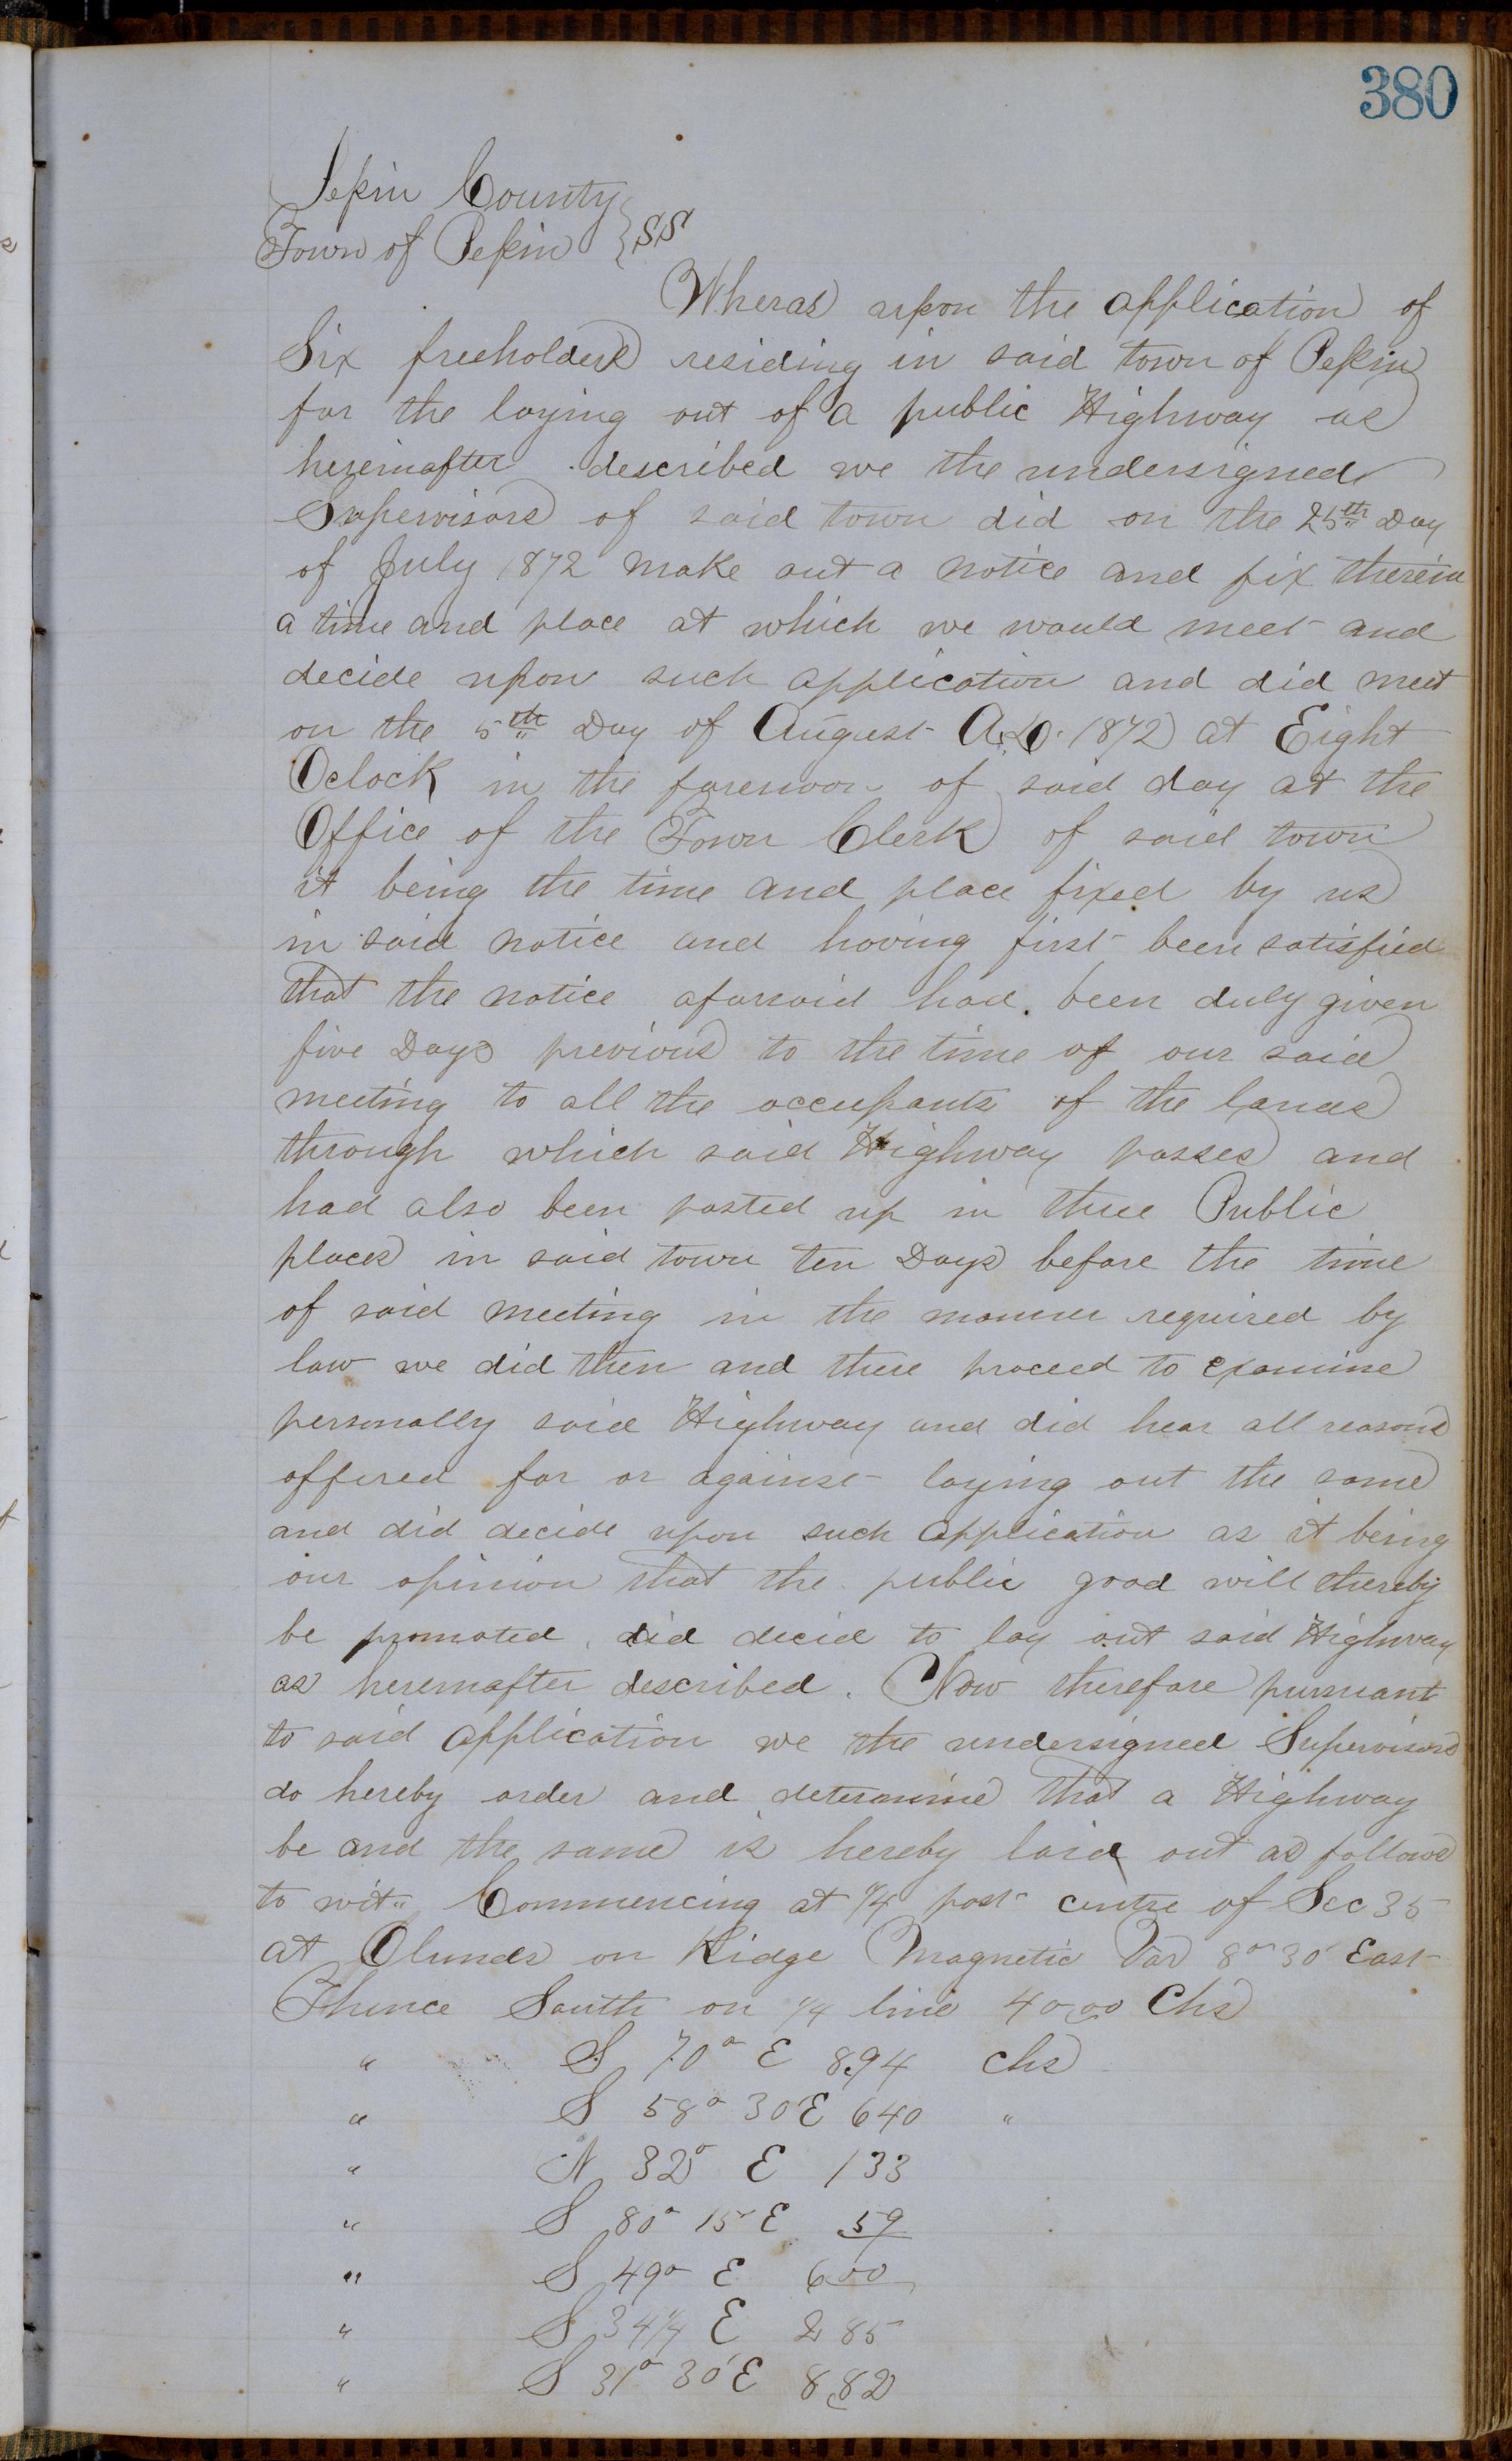 380
Pepin County
Town of Pepin } SS
Wheras upon the application of
Six freeholders residing in said town of Pepin
for the laying out of a public Highway as
hereinafter described we the undersigned
Supervisors of said town did on the 25th Day
of July 1872 make out a notice and fix therein
a time and place at which we would meet and
decide upon such application and did meet
on the 5th Day of August A.D. 1872 at Eight
Oclock in the forenoon of said day at the
Office of the Town Clerk of said town
it being the time and place fixed by us
in said notice and having first been satisfied
that the notice aforsaid had been duly given
five Days previous to the time of our said
meeting to all the occupants of the lands
through which said Highway passes and
had also been posted up in three Public
places in said town ten Days before the time
of said meeting in the manner required by
law we did then and there proceed to examine
personally said Highway and did hear all reasons
offered for or against laying out the same
and did decide upon such application as it being
our opinion that the public good will thereby
be promoted, did decid to lay out said Highway
as hereinafter described. Now therefore pursuant
to said application we the undersigned Supervisors
do hereby order and determine that a Highway
be and the same is hereby laid out as follows
to wit" Commencing at 1/4 post centre of Sec 35
at Olunds on Ridge Magnetic Var 8° 30' East
Thence South on 1/4 line 40.00 Chs
" S 70° E 8.94 chs
" S 58° 30 E 640 "
" N 32° E 133
" S 80° 15 E 59
" S 49° E 600
" S 34 1/4 E 2 85
" S 31° 30' E 8 82